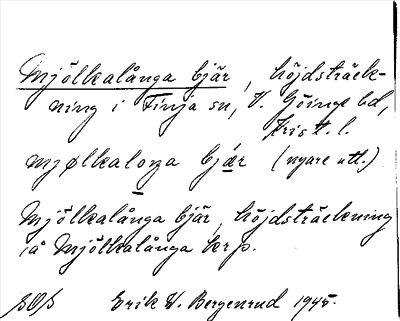 Mjölkalånga bjär, höjdsträck-
ning i Finja sn, V. Göinge hd,
Krist. l.
mjølkaloŋa bjær (nyare utt.)
Mjölkalånga bjär, höjdsträckning
å Mjölkalånga krp.
Erik W. Bergenrud 1945.